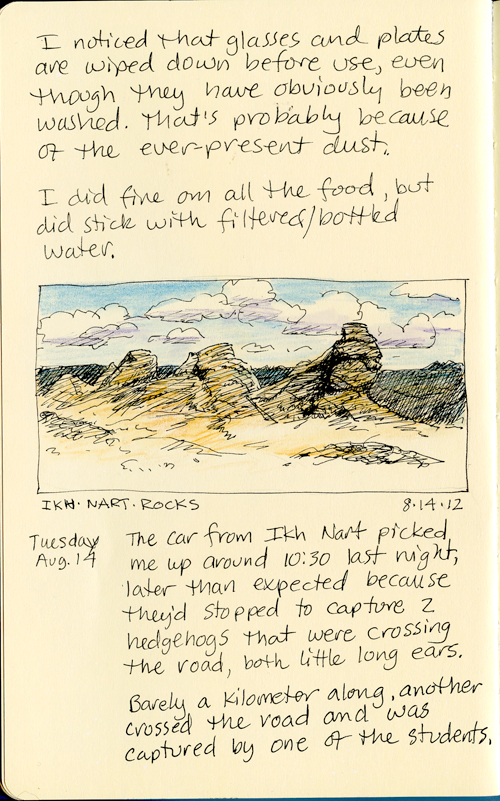 I noticed that glasses and plates
are wiped down before use, even
though they have obviously been
washed. That's probably because
of the ever-present dust.
I did fine on all the food, but
did stick with filtered/bottled
water.
IKH·NART·ROCKS
8·14·12
Tuesday
Aug. 14
The car from Ikh Nart picked
me up around 10:30 last night,
later than expected because
they'd stopped to capture 2
hedgehogs that were crossing
the road, both little long ears.
Barely a kilometer along, another
crossed the road and was
captured by one of the students.